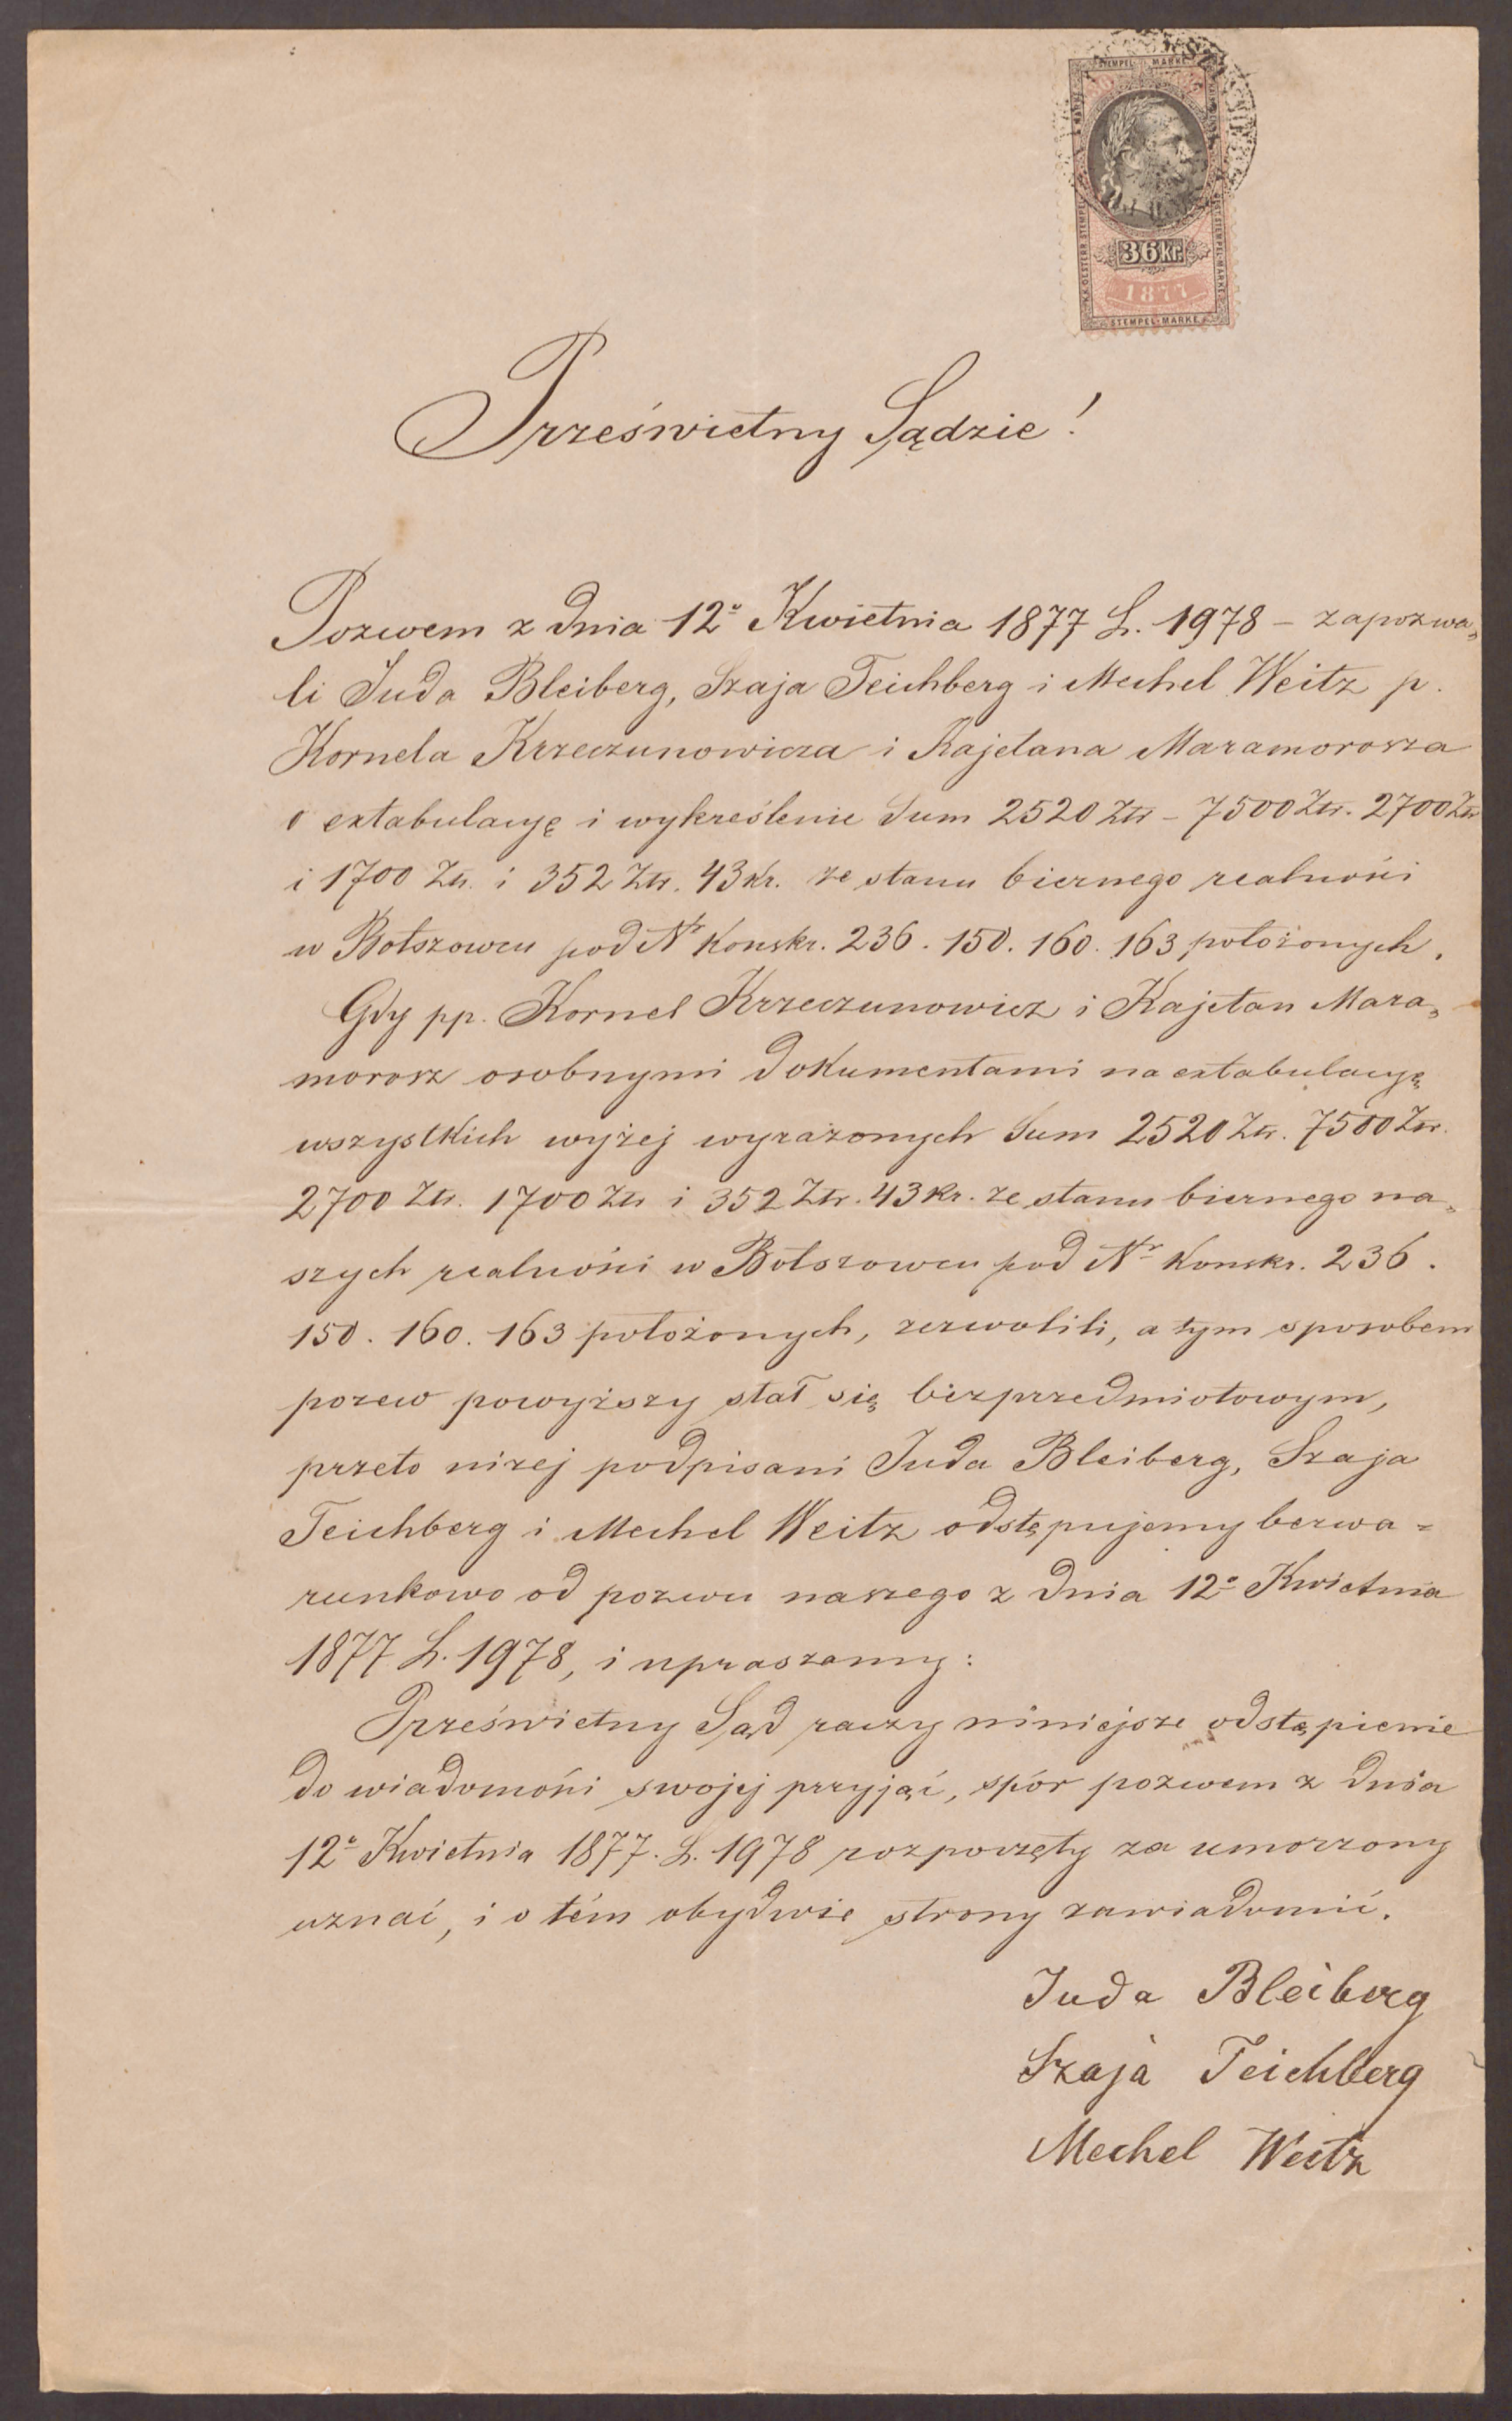 STEMPEL MARKE
36 kr.
1877
STEMPEL-MARKE
Prześwietny Sądzie!
Pozwem z dnia 12º Kwietnia 1877 L. 1978 – zapozwa„
li Juda Bleiberg, Szaja Teichberg i Mechel Weitz p.
Kornela Krzeczunowicza i Kajetana Maramorosza
o extabulacyę i wykreślenie Sum 2520 Złr – 7500 Złr. 2700 Złr
i 1700 Złr. i 352 Złr. 43 kr. ze stanu biernego realności
w Bołszowcu pod Nr Konskr. 236. 150. 160. 163 położonych.
Gdy pp. Kornel Krzeczunowicz i Kajetan Mara„
morosz osobnymi dokumentami na extabulacyę
wszystkich wyżej wyrażonych Sum 2520 Złr. 7500 Złr.
2700 Złr. 1700 Złr i 352 Złr. 43 kr. ze stanu biernego na„
szych realności w Bołszowcu pod Nr Konskr. 236.
150. 160. 163 położonych, zezwolili, a tym sposobem
pozew powyższy stał się bezprzedmiotowym,
przeto niżej podpisani Juda Bleiberg, Szaja
Teichberg i Mechel Weitz odstępujemy bezwa=
runkowo od pozwu naszego z dnia 12º Kwietnia
1877 L. 1978, i upraszamy:
Prześwietny Sąd raczy niniejsze odstąpienie
do wiadomości swojej przyjąć, spór pozwem z dnia
12º Kwietnia 1877. L. 1978 rozpoczęty za umorzony
uznać, i o tém obydwie strony zawiadomić.
Juda Bleiberg
Szaja Teichberg
Mechel Weitz